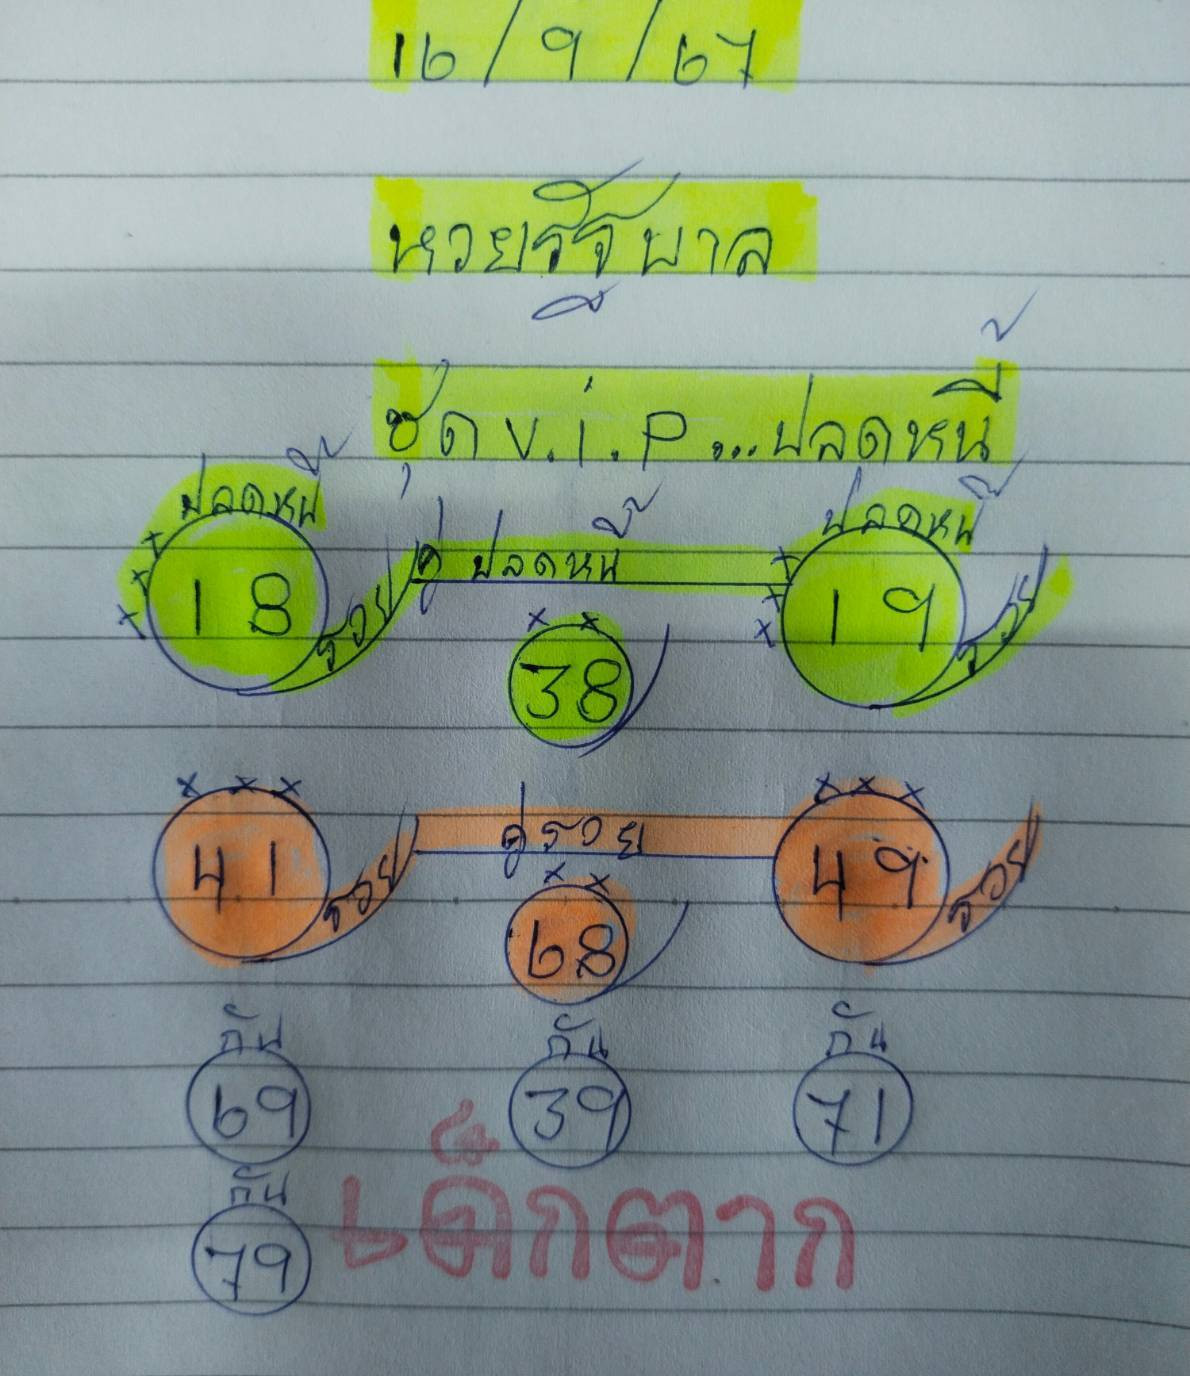 16/9/67
หวยรัฐบาล
ชุด v.i.p...ปลดหนี้
ปลดหนี้ ปลดหนี้
คู่ ปลดหนี้
18 รวย 19 รวย
38
คู่รวย
41 รวย 49 รวย
68
กัน กัน กัน
69 39 71
กัน
79
เด็กตาก